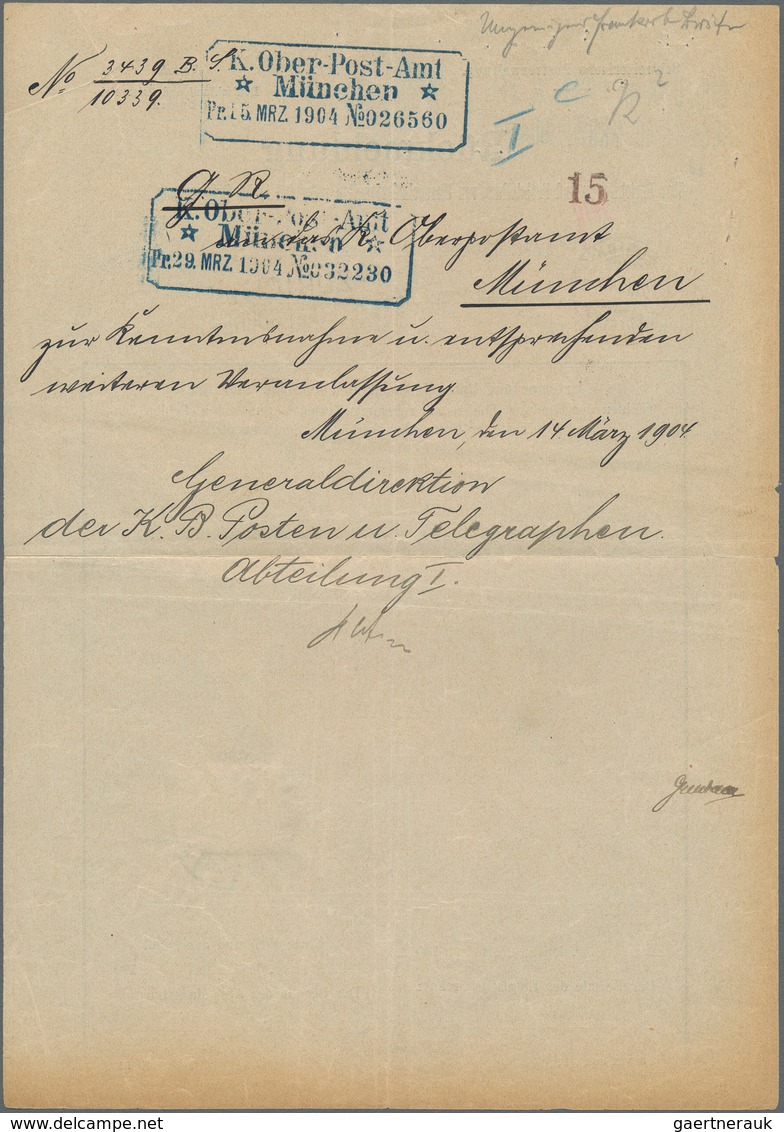 No 3439 B. S.
10339.
K. Ober-Post-Amt
München
Pr. 15. MRZ. 1904 No 026560
I c
15
G. R.
K. Ober-Post-Amt
München
Pr. 29. MRZ. 1904 No 032230
an das K. Oberpostamt
München
zur Kenntnisnahme u. entsprechenden
weiteren Veranlassung.
München, den 14 März 1904.
Generaldirektion
der K. B. Posten u. Telegraphen.
Abteilung I.
gaertnerauk